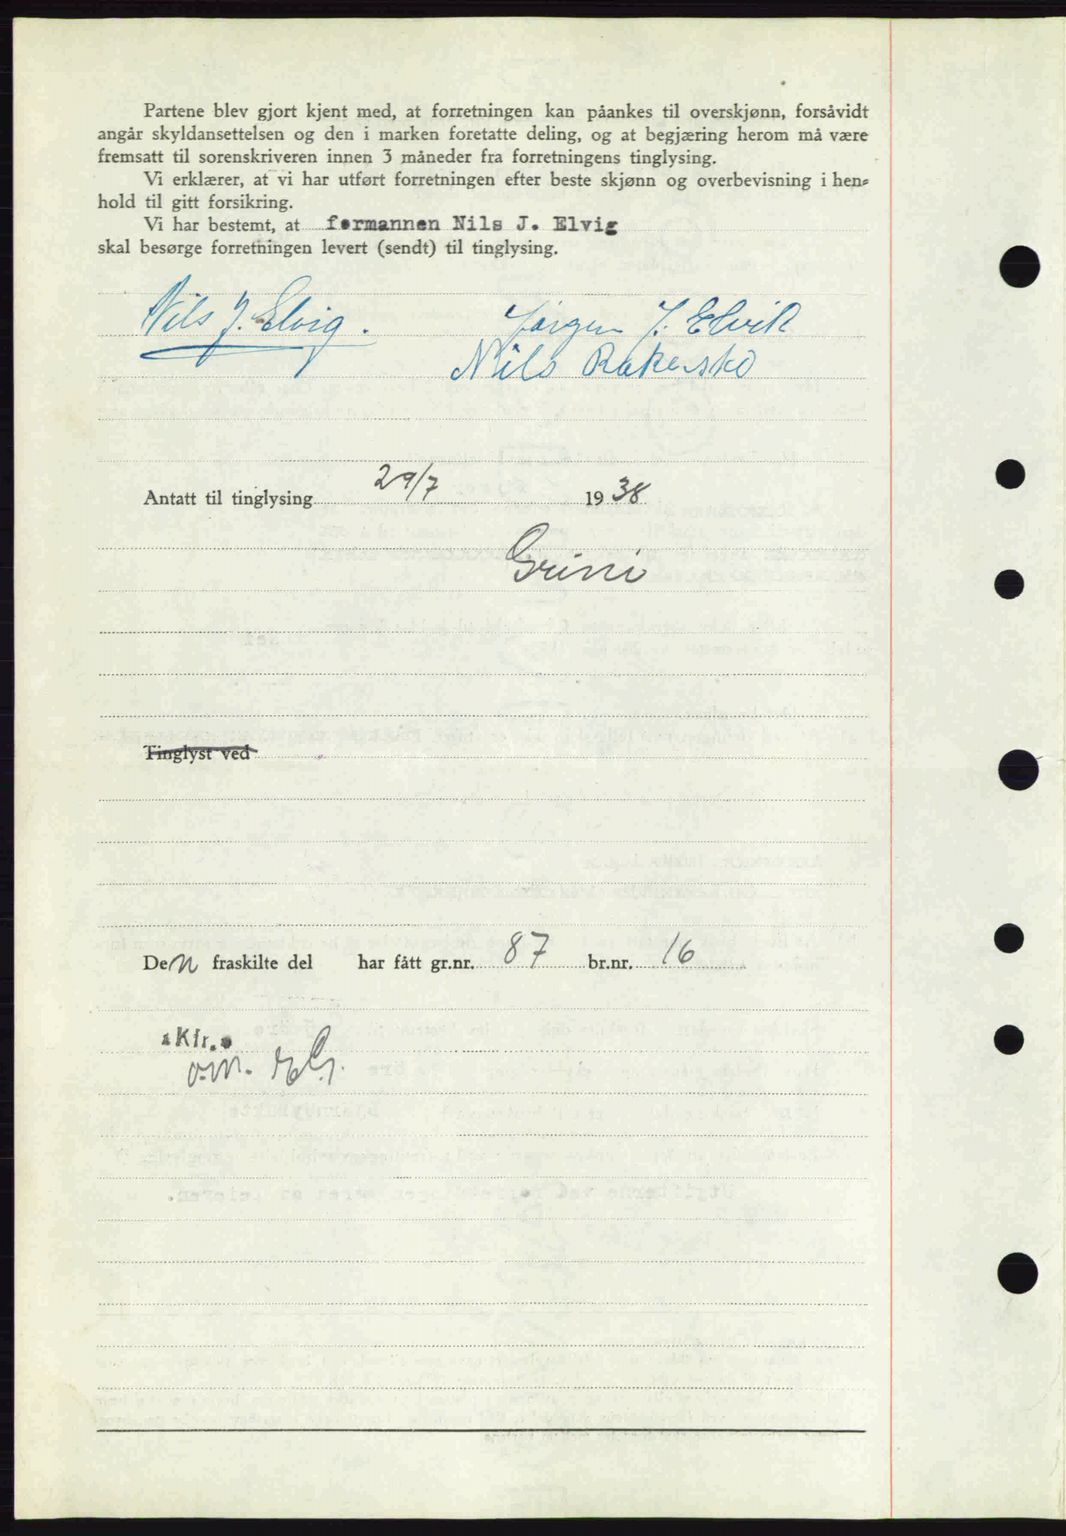 Partene blev gjort kjent med, at forretningen kan påankes til overskjønn, forsåvidt
angår skyldansettelsen og den i marken foretatte deling, og at begjæring herom må være
fremsatt til sorenskriveren innen 3 måneder fra forretningens tinglysing.
Vi erklærer, at vi har utført forretningen efter beste skjønn og overbevisning i hen-
hold til gitt forsikring.
Vi har bestemt, at formannen Nils J. Elvig
skal besørge forretningen levert (sendt) til tinglysing.
Nils J. Elvig. Jørgen J. Elvik
Nils Rakerskö
Antatt til tinglysing 29/7 1938
Grini
Tinglyst ved
Den fraskilte del har fått gr.nr. 87 br.nr. 16
Kfr.